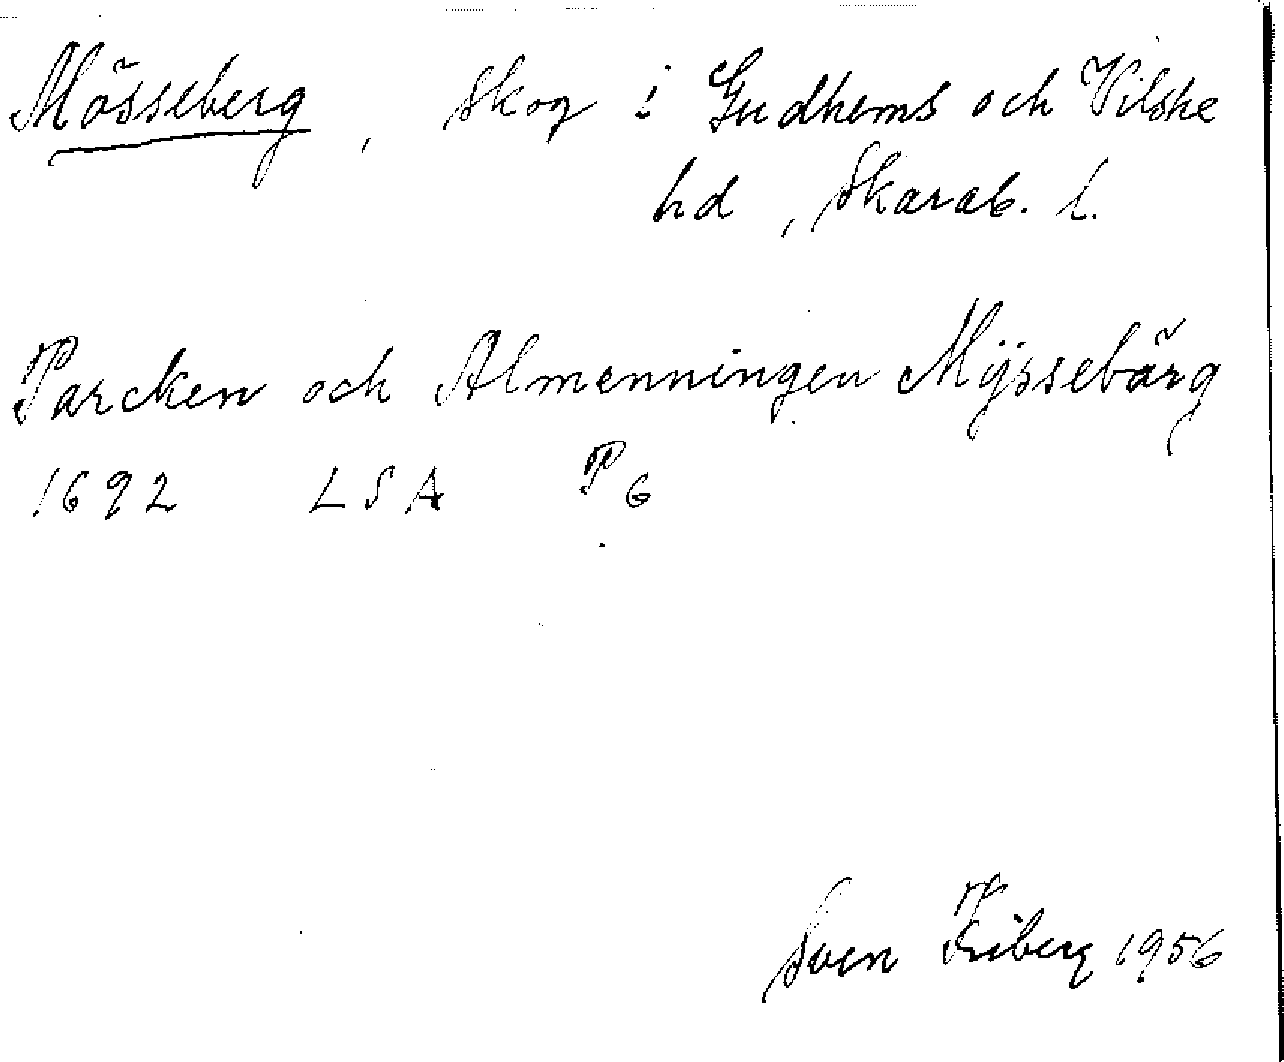 Mösseberg, skog i Gudhems och Vilske
hd, Skarab. l.
Parcken och Almenningen Mÿssebärg
1692 LSA P6
Sven Friberg 1956